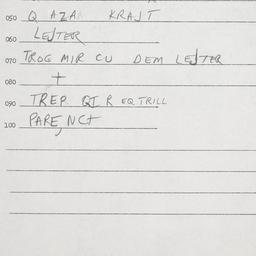 050 Q AZA KRAJT
060 LEJTER
070 TROG MIR CU DEM LEJTER
080 +
090 TREP QT R EQ TRILL
100 PARE, NCT